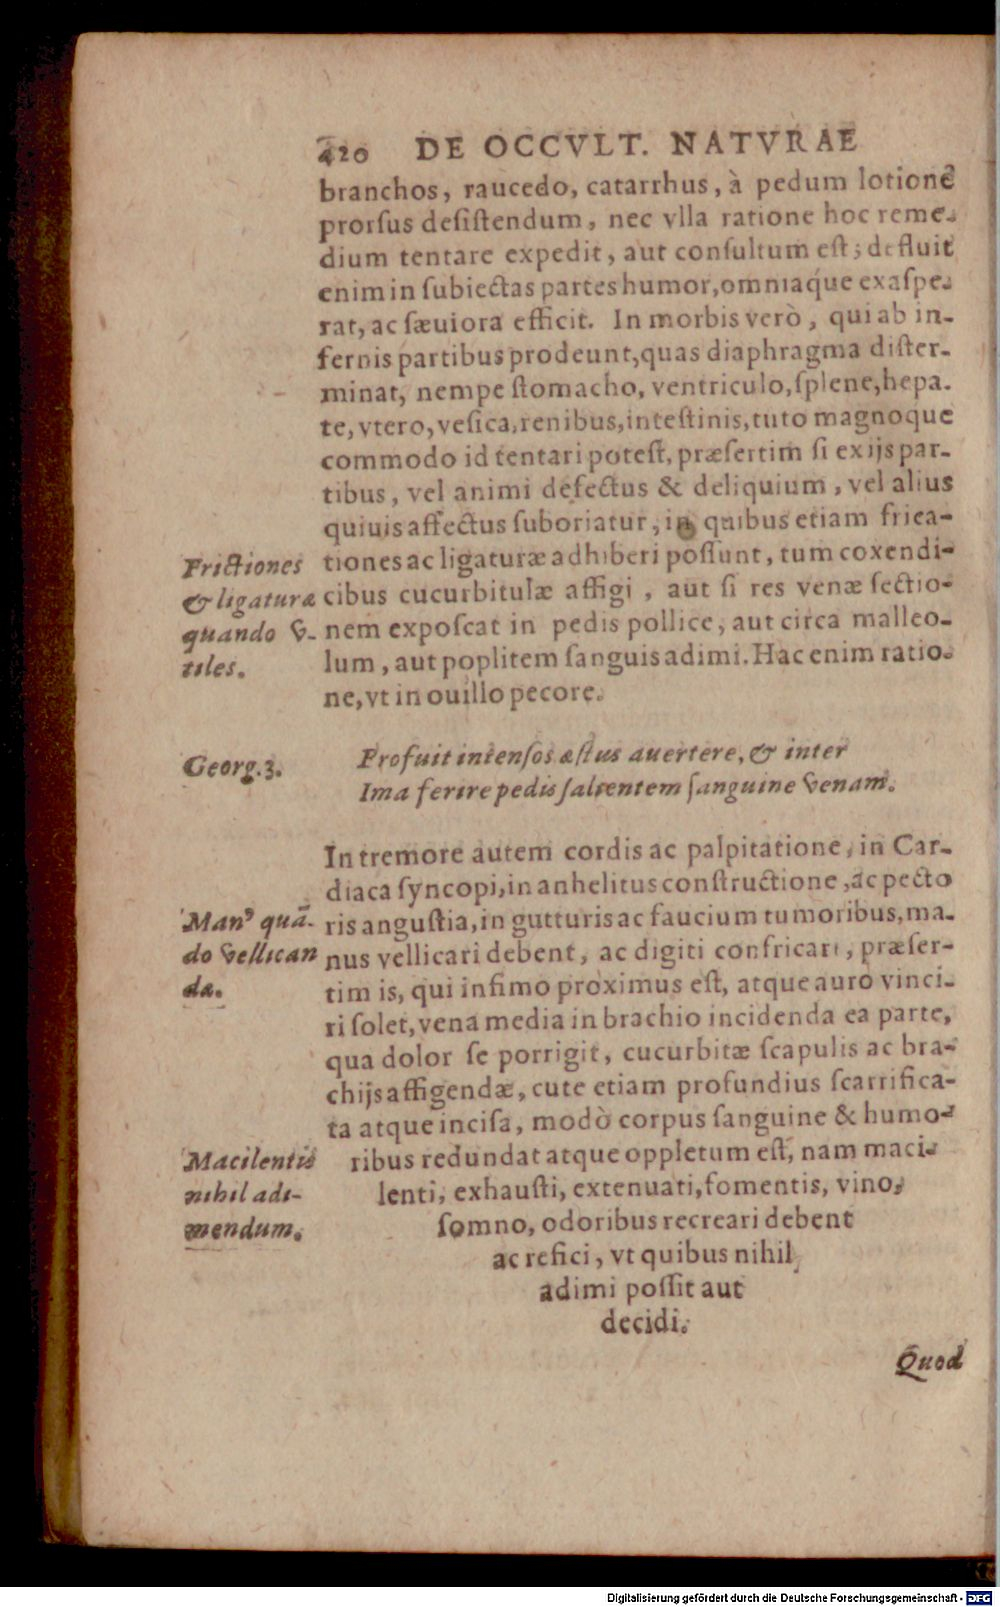 420 DE OCCVLT. NATVRAE
branchos, raucedo, catarrhus, à pedum lotione
prorſus deſiſtendum, nec vlla ratione hoc reme-
dium tentare expedit, aut conſultum eſt; defluit
enim in ſubiectas partes humor, omniaq́ue exaſpe-
rat, ac ſæuiora efficit. In morbis verò, qui ab in-
fernis partibus prodeunt, quas diaphragma diſter-
minat, nempe ſtomacho, ventriculo, ſplene, hepa-
te, vtero, veſica, renibus, inteſtinis, tuto magnoque
commodo id tentari poteſt, præſertim ſi ex ijs par-
tibus, vel animi defectus & deliquium, vel alius
quiuis affectus ſuboriatur, in quibus etiam frica-
tiones ac ligaturæ adhiberi poſſunt, tum coxendi-
cibus cucurbitulæ affigi, aut ſi res venæ ſectio-
nem expoſcat in pedis pollice, aut circa malleo-
lum, aut poplitem ſanguis adimi. Hac enim ratio-
ne, vt in ouillo pecore.
Frictiones
& ligaturæ
quando v-
tiles.
Georg. 3.
Profuit intenſos æſtus auertere, & inter
Ima ferire pedis ſalientem ſanguine venam.
In tremore autem cordis ac palpitatione, in Car-
diaca ſyncopi, in anhelitus conſtructione, ac pecto
ris anguſtia, in gutturis ac faucium tumoribus, ma-
nus vellicari debent, ac digiti confricari, præſer-
tim is, qui infimo proximus eſt, atque auro vinci-
ri ſolet, vena media in brachio incidenda ea parte,
qua dolor ſe porrigit, cucurbitæ ſcapulis ac bra-
chijs affigendæ, cute etiam profundius ſcarrifica-
ta atque inciſa, modò corpus ſanguine & humo-
ribus redundat atque oppletum eſt, nam maci-
lenti, exhauſti, extenuati, fomentis, vino,
ſomno, odoribus recreari debent
ac refici, vt quibus nihil
adimi poſſit aut
decidi.
Manꝰ quā-
do vellican
da.
Macilentis
nihil adi-
mendum.
Quod
Digitalisierung gefördert durch die Deutsche Forschungsgemeinschaft - DFG